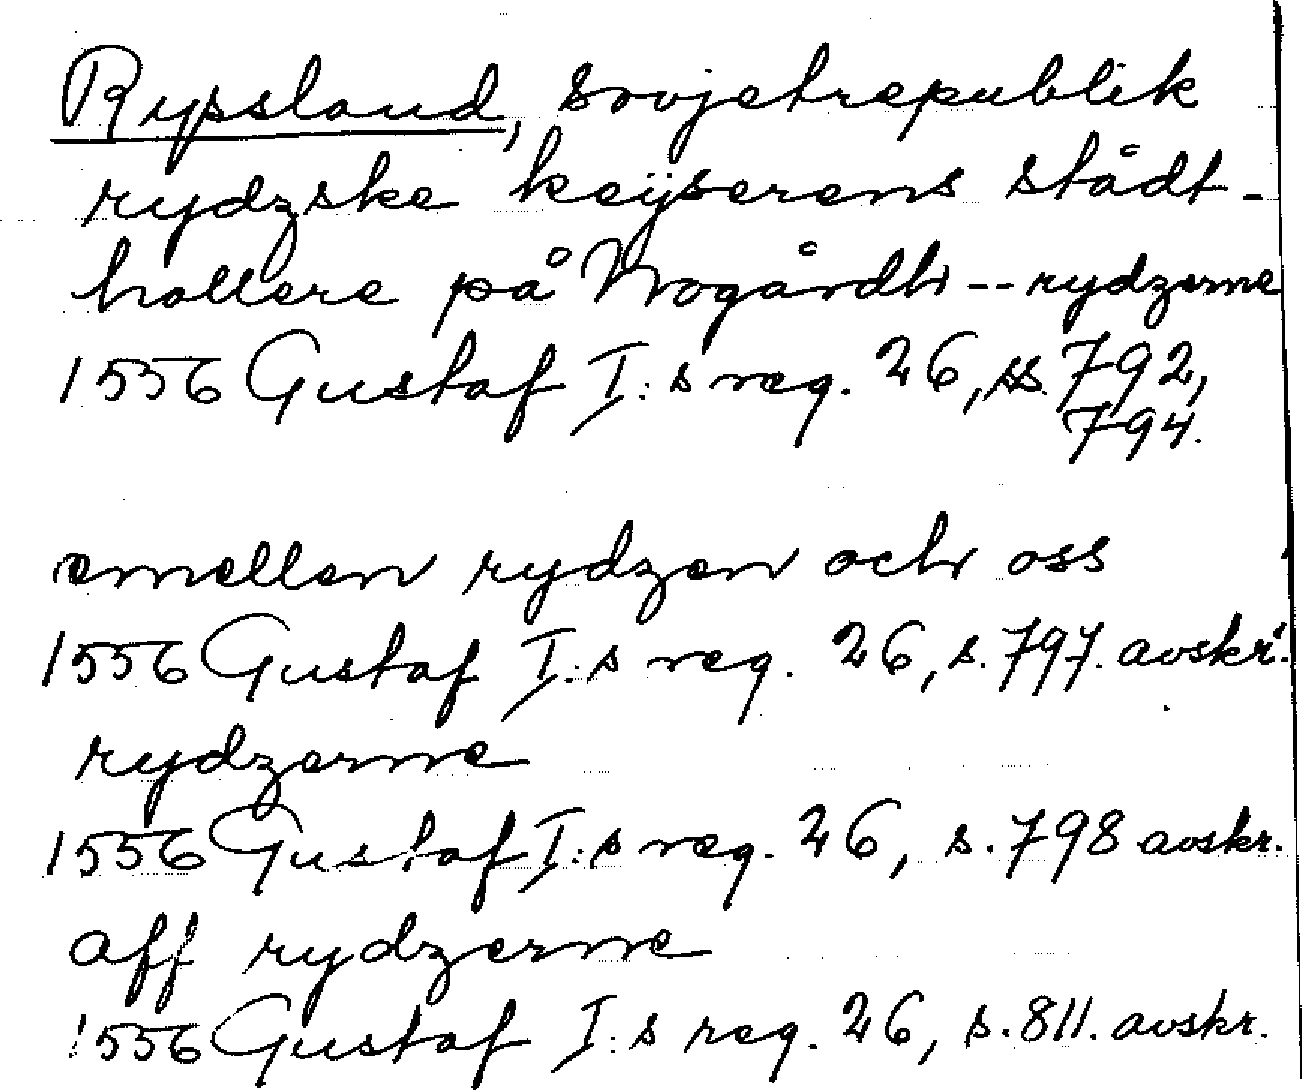 Ryssland, Sovjetrepublik
rydzske keÿserens stådt-
hollere på Nogårdh -- rydzerne
1556 Gustaf I:s reg. 26, ss. 792,
794.
emellen rydzen och oss
1556 Gustaf I:s reg. 26, s. 797. avskr.
rydzerne
1556 Gustaf I:s reg. 26, s. 798 avskr.
aff rydzerne
1556 Gustaf I:s reg. 26, s. 811. avskr.